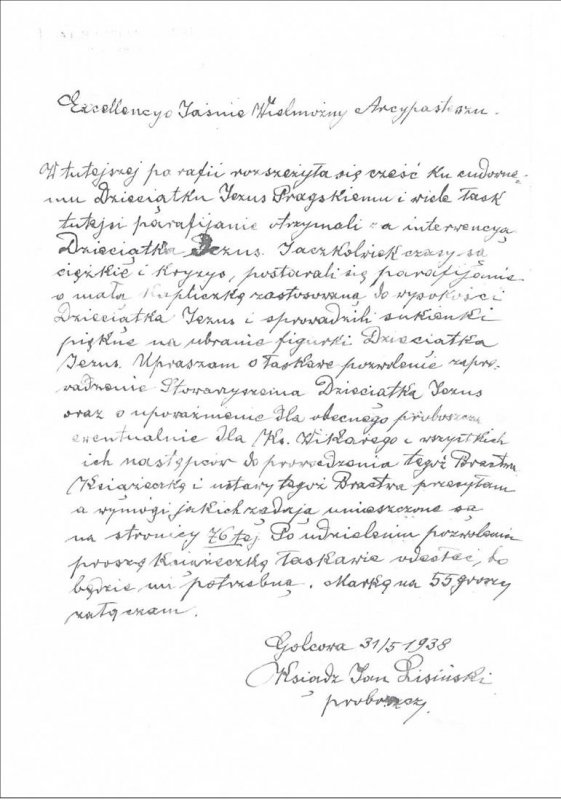 Excellencyo Jaśnie Wielmożny Arcypasterzu.
W tutejszej parafii rozszeżyła się cześć ku cudowne-
mu Dzieciątku Jezus Pragskiemu i wiele łask
tutejsi parafijanie otrzymali za interwencyą
Dzieciątka Jezus. Jaczkolwiek czasy są
ciężkie i kryzys, postarali się parafijanie
o małą kapliczkę zastosowaną do wysokości
Dzieciątka Jezus i sprowadzili sukienki
piękne na ubranie figurki Dzieciątka
Jezus. Upraszam o łaskawe pozwolenie zapro-
wadzenie Stowarzyszeina Dzieciątka Jezus
oraz o upoważnienie dla obecnego proboszcza
ewentualnie dla Ks. Wikarego i wszystkich
ich następców do prowadzenia tegoż Bractwa
Książeczkę i ustawy tegoż Bractwa przesyłam
a wymogi jakich żądają umieszczone są
na stronicy 76 tej. Po udzieleniu pozwolenia
proszę Książeczkę łaskawie odesłać, bo
będzie mi potrzebną. Markę na 55 groszy
załączam.
Golcowa 31/5 1938
Ksiądz Jan Lisiński
proboszcz